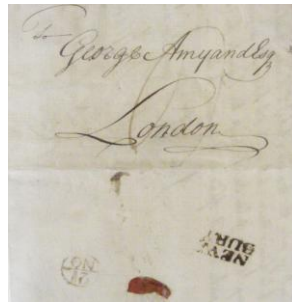 To
George Amyand Esq
London
NEW
BURY
NO